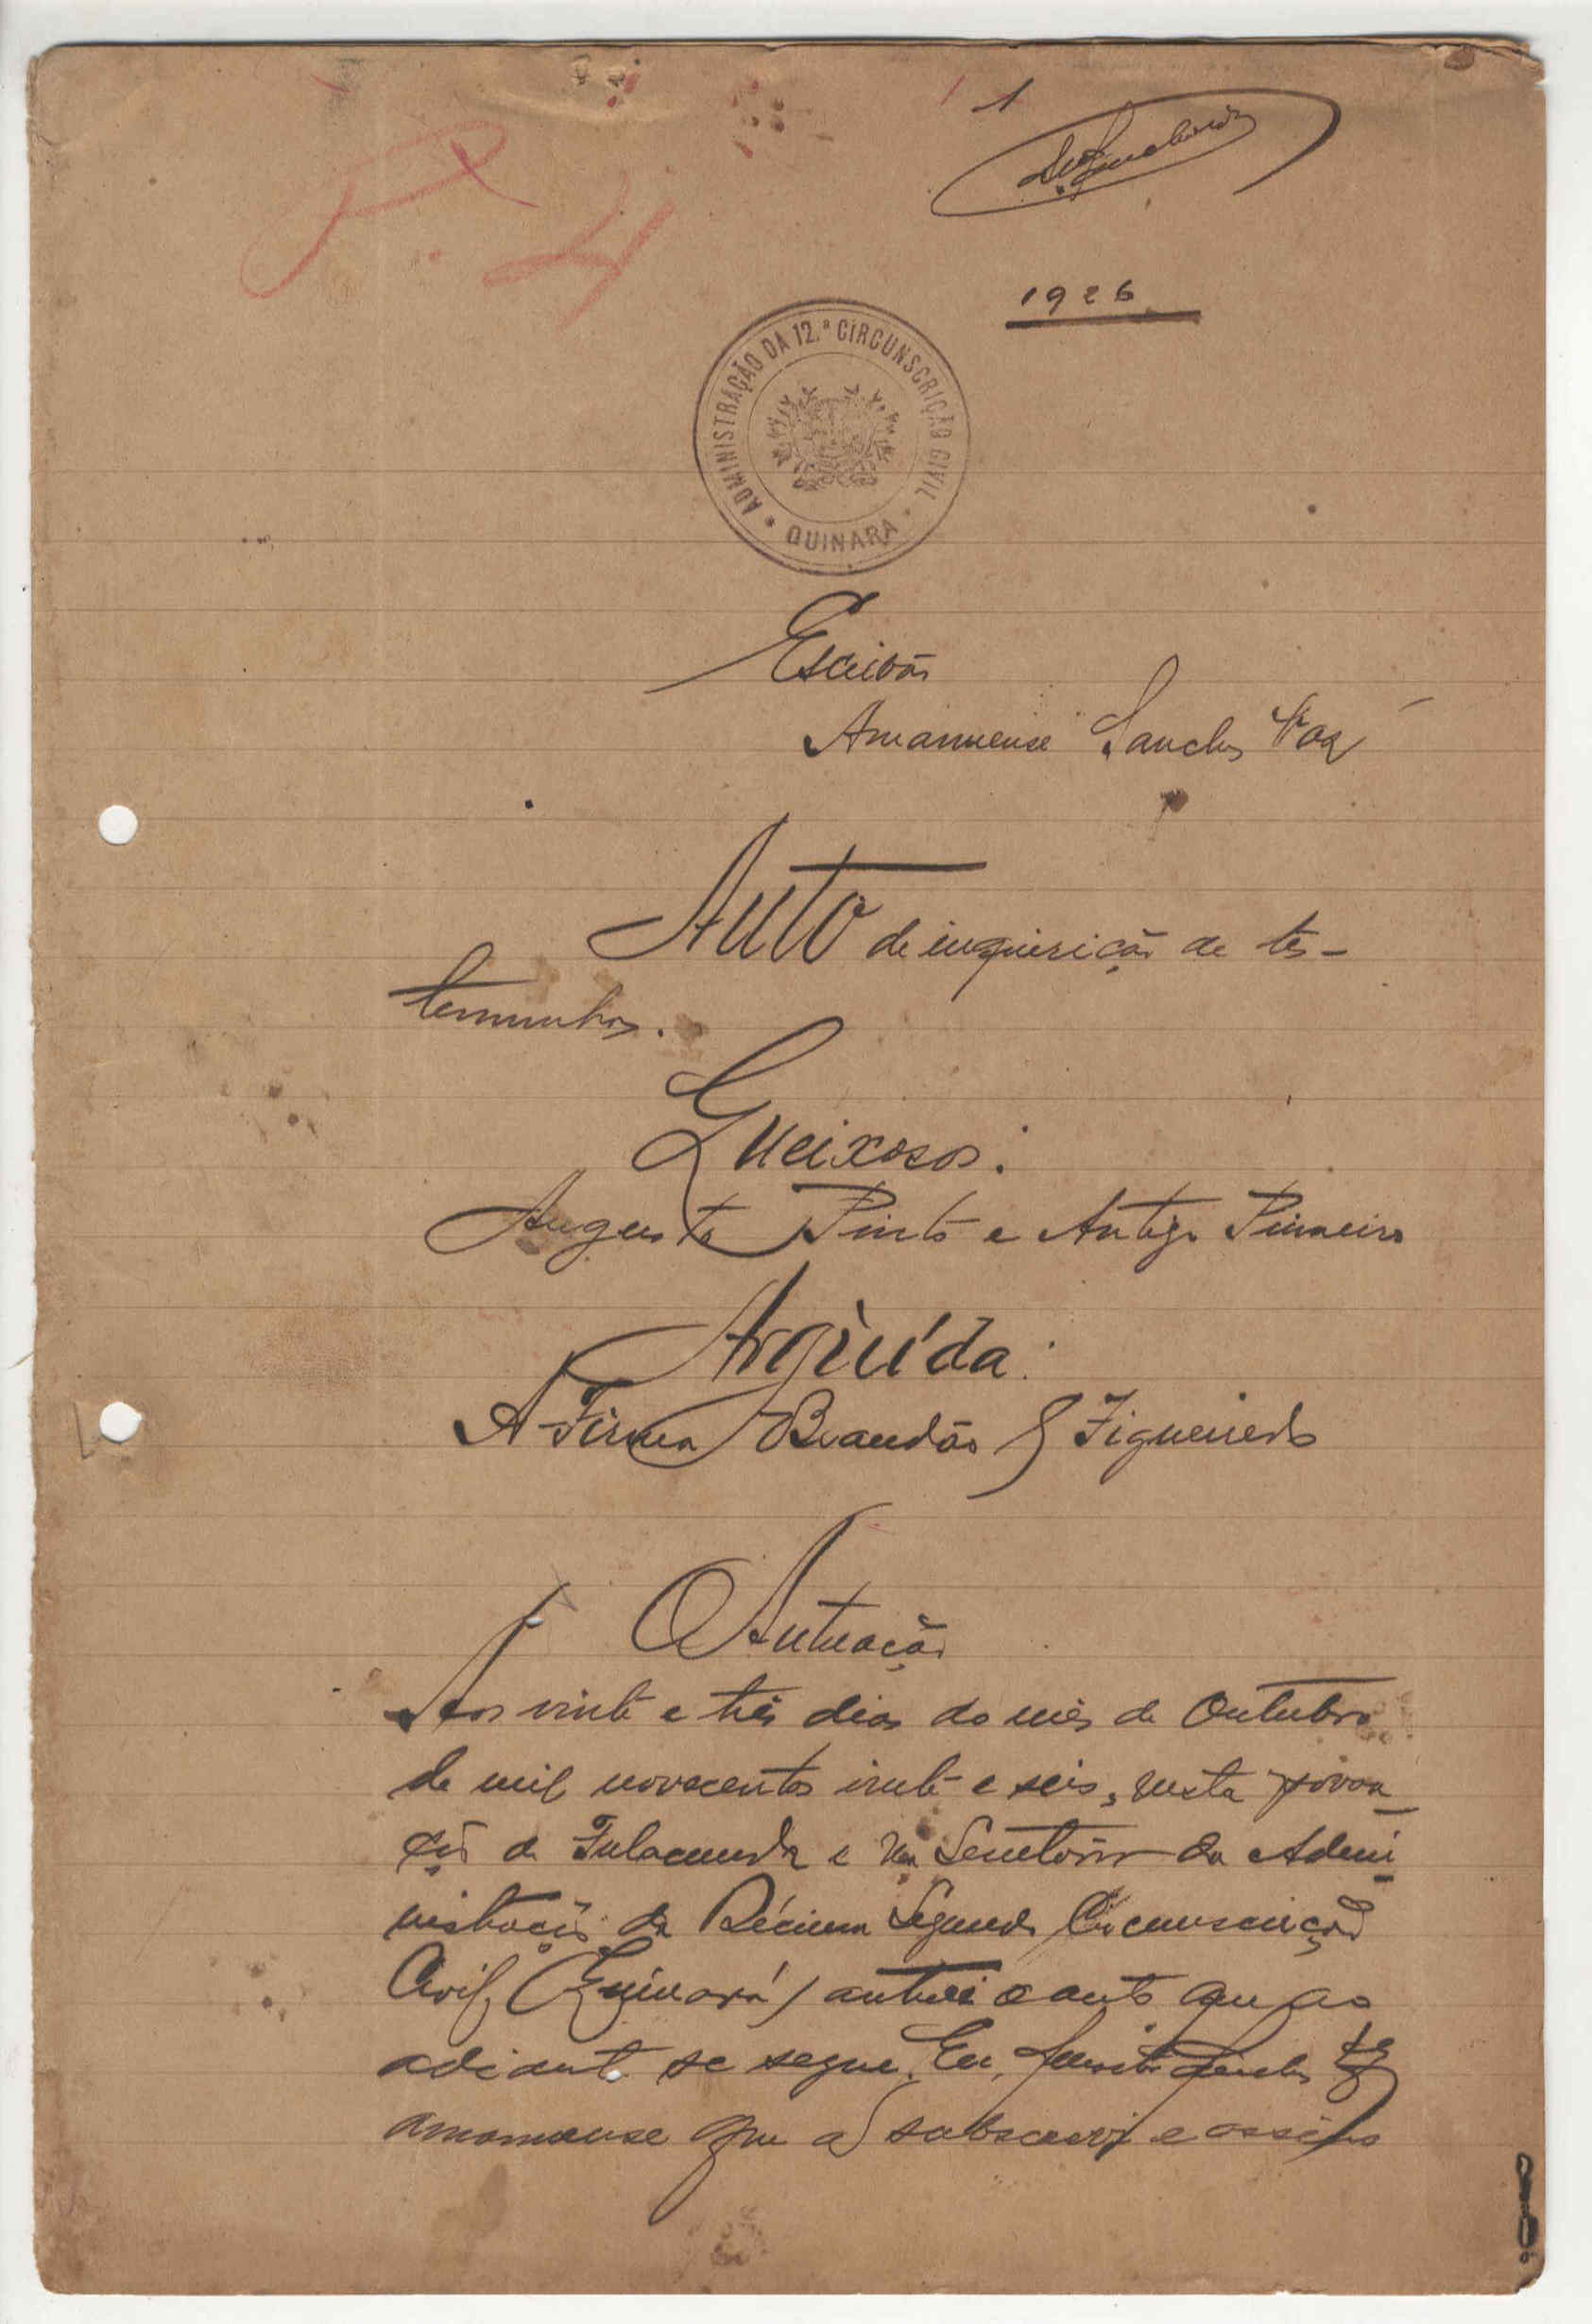 1
1926
ADMINISTRAÇÃO DA 12.ª CIRCUNSCRIÇÃO CIVIL
QUINARA
Escrivão
Amanuense Sanches Vaz
Auto de inquirição de tes-
temunhas.
Queixosos:
Augusto Pinto e António Pinheiro
Argùída:
A Firma Brandão & Figueiredo
Autuação
Aos vinte e três dias do mês de Outubro
de mil novecentos vinte e seis, nesta povoa_
ção de Fulacunda e na Secretaria da Admi_
nistração da Décima Segunda Circunscrição
Civil (Quinará) autuei o auto que ao
adiante se segue. Eu, Sanches Vaz
amanuense que a subscrevi e assino